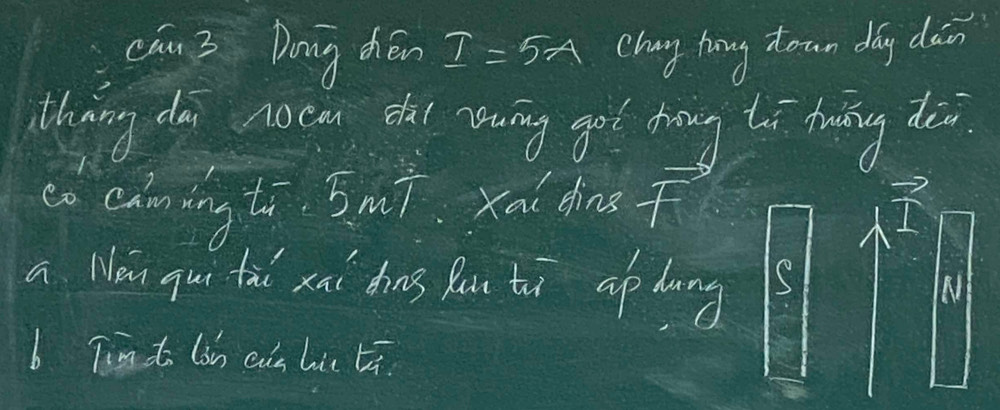 câu 3 Dòng điện I = 5A chạy trong đoạn dây dẫn
thẳng dài 10cm đặt vuông góc trong từ trường đều.
có cảm ứng từ 5mT. Xác định F
I
a Nêu qui tắc xác định lực từ áp dụng
S N
b Tìm độ lớn của lực từ.